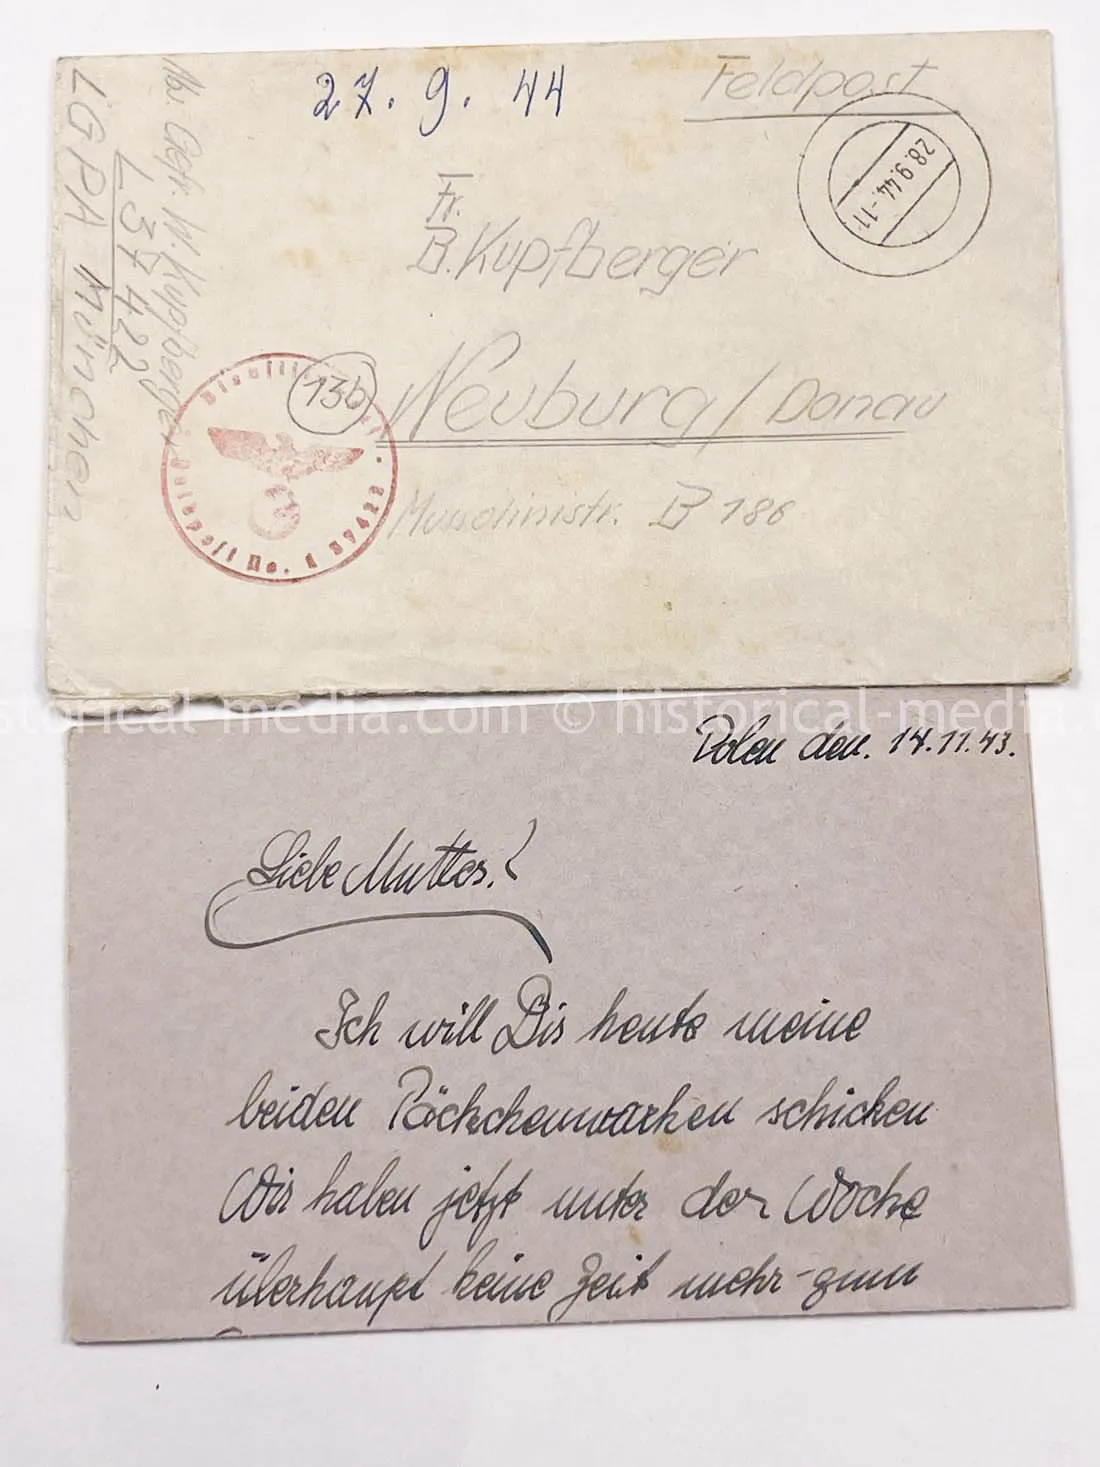 27. 9. 44
Feldpost
28.9.44.-11
Fr.
B. Kupfberger
13b
Neuburg / Donau
Mussolinistr. B 186
Gefr. W. Kupfberger
L 37422
LGPA München
Feldpost No. L
historical-media.com © historical-media.
Polen den. 14.11.43.
Liebe Mutter!
Ich will Dir heute meine
beiden Päckchenmarken schicken
Wir haben jetzt unter der Woche
überhaupt keine Zeit mehr zum